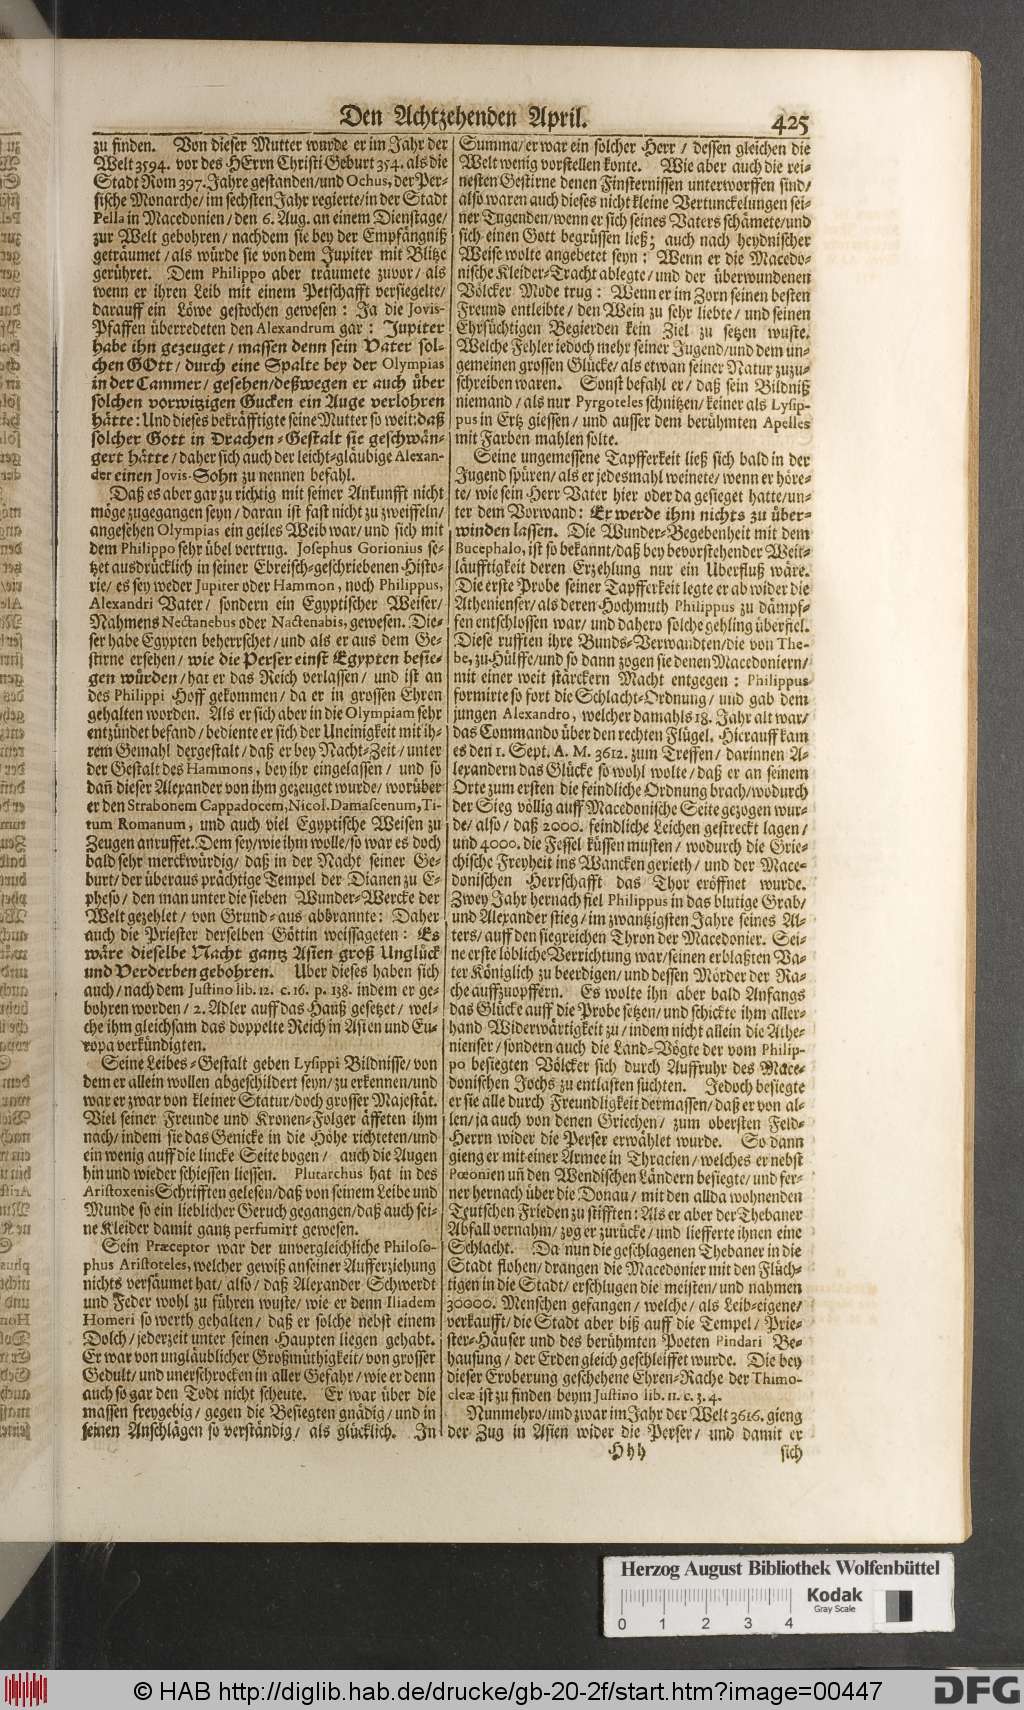 Den Achtzehenden April.
425
zu finden. Von dieser Mutter wurde er im Jahr der
Welt 3594. vor des HErrn Christi Geburt 354. als die
Stadt Rom 397. Jahre gestanden/und Ochus, der Per-
sische Monarche/im sechsten Jahr regierte/in der Stadt
Pella in Macedonien/den 6. Aug. an einem Dienstage/
zur Welt gebohren/nachdem sie bey der Empfängniß
geträumet/als würde sie von dem Jupiter mit Blitze
gerühret. Dem Philippo aber träumete zuvor/als
wenn er ihren Leib mit einem Petschafft versiegelte/
darauff ein Löwe gestochen gewesen: Ja die Jovis-
Pfaffen überredeten den Alexandrum gar: Jupiter
habe ihn gezeuget/massen denn sein Vater sol-
chen GOtt/durch eine Spalte bey der Olympias
in der Cammer/gesehen/deßwegen er auch über
solchen vorwitzigen Gucken ein Auge verlohren
hätte: Und dieses bekräfftigte seine Mutter so weit: daß
solcher Gott in Drachen-Gestalt sie geschwän-
gert hätte/daher sich auch der leicht-gläubige Alexan-
der einen Jovis-Sohn zu nennen befahl.
Daß es aber gar zu richtig mit seiner Ankunfft nicht
möge zugegangen seyn/daran ist fast nicht zu zweiffeln/
angesehen Olympias ein geiles Weib war/und sich mit
dem Philippo sehr übel vertrug. Josephus Gorionius se-
tzet ausdrücklich in seiner Ebreisch-geschriebenen Histo-
rie/es sey weder Jupiter oder Hammon, noch Philippus,
Alexandri Vater/sondern ein Egyptischer Weiser/
Nahmens Nectanebus oder Nactenabis, gewesen. Die-
ser habe Egypten beherrschet/und als er aus dem Ge-
stirne ersehen/wie die Perser einst Egypten besie-
gen würden/hat er das Reich verlassen/und ist an
des Philippi Hoff gekommen/da er in grossen Ehren
gehalten worden. Als er sich aber in die Olympiam sehr
entzündet befand/bediente er sich der Uneinigkeit mit ih-
rem Gemahl dergestalt/daß er bey Nacht-Zeit/unter
der Gestalt des Hammons, bey ihr eingelassen/und so
dañ dieser Alexander von ihm gezeuget wurde/worüber
er den Strabonem Cappadocem, Nicol. Damascenum, Ti-
tum Romanum, und auch viel Egyptische Weisen zu
Zeugen anruffet. Dem sey/wie ihm wolle/so war es doch
bald sehr merckwürdig/daß in der Nacht seiner Ge-
burt/der überaus prächtige Tempel der Dianen zu E-
pheso/den man unter die sieben Wunder-Wercke der
Welt gezehlet/von Grund-aus abbrannte: Daher
auch die Priester derselben Göttin weissageten: Es
wäre dieselbe Nacht gantz Asien groß Unglück
und Verderben gebohren. Uber dieses haben sich
auch/nach dem Justino lib. 12. c. 16. p. 138. indem er ge-
bohren worden/2. Adler auff das Hauß gesetzet/wel-
che ihm gleichsam das doppelte Reich in Asien und Eu-
ropa verkündigten.
Seine Leibes-Gestalt geben Lysippi Bildnisse/von
dem er allein wollen abgeschildert seyn/zu erkennen/und
war er zwar von kleiner Statur/doch grosser Majestät.
Viel seiner Freunde und Kronen-Folger äffeten ihm
nach/indem sie das Genicke in die Höhe richteten/und
ein wenig auff die lincke Seite bogen/auch die Augen
hin und wieder schiessen liessen. Plutarchus hat in des
Aristoxenis Schrifften gelesen/daß von seinem Leibe und
Munde so ein lieblicher Geruch gegangen/daß auch sei-
ne Kleider damit gantz perfumirt gewesen.
Sein Præceptor war der unvergleichliche Philoso-
phus Aristoteles, welcher gewiß an seiner Aufferziehung
nichts versäumet hat/also/daß Alexander Schwerdt
und Feder wohl zu führen wuste/wie er denn Iliadem
Homeri so werth gehalten/daß er solche nebst einem
Dolch/jederzeit unter seinen Haupten liegen gehabt.
Er war von ungläublicher Großmüthigkeit/von grosser
Gedult/und unerschrocken in aller Gefahr/wie er denn
auch so gar den Todt nicht scheute. Er war über die
massen freygebig/gegen die Besiegten gnädig/und in
seinen Anschlägen so verständig/als glücklich. In
Summa/er war ein solcher Herr/dessen gleichen die
Welt wenig vorstellen konte. Wie aber auch die rei-
nesten Gestirne denen Finsternissen unterworffen sind/
also waren auch dieses nicht kleine Vertunckelungen sei-
ner Tugenden/wenn er sich seines Vaters schämete/und
sich einen Gott begrüssen ließ; auch nach heydnischer
Weise wolte angebetet seyn: Wenn er die Macedo-
nische Kleider-Tracht ablegte/und der überwundenen
Völcker Mode trug: Wenn er im Zorn seinen besten
Freund entleibte/den Wein zu sehr liebte/und seinen
Ehrsüchtigen Begierden kein Ziel zu setzen wuste.
Welche Fehler iedoch mehr seiner Jugend/und dem un-
gemeinen grossen Glücke/als etwan seiner Natur zuzu-
schreiben waren. Sonst befahl er/daß sein Bildniß
niemand/als nur Pyrgoteles schnitzen/keiner als Lysip-
pus in Ertz giessen/und ausser dem berühmten Apelles
mit Farben mahlen solte.
Seine ungemessene Tapfferkeit ließ sich bald in der
Jugend spüren/als er jedesmahl weinete/wenn er höre-
te/wie sein Herr Vater hier oder da gesieget hatte/un-
ter dem Vorwand: Er werde ihm nichts zu über-
winden lassen. Die Wunder-Begebenheit mit dem
Bucephalo, ist so bekannt/daß bey bevorstehender Weit-
läufftigkeit deren Erzehlung nur ein Uberfluß wäre.
Die erste Probe seiner Tapfferkeit legte er ab wider die
Athenienser/als deren Hochmuth Philippus zu dämpf-
fen entschlossen war/und dahero solche gehling überfiel.
Diese rufften ihre Bunds-Verwandten/die von The-
be, zu Hülffe/und so dann zogen sie denen Macedoniern/
mit einer weit stärckern Macht entgegen: Philippus
formirte so fort die Schlacht-Ordnung/und gab dem
jungen Alexandro, welcher damahls 18. Jahr alt war/
das Commando über den rechten Flügel. Hierauff kam
es den 1. Sept. A. M. 3612. zum Treffen/darinnen A-
lexandern das Glücke so wohl wolte/daß er an seinem
Orte zum ersten die feindliche Ordnung brach/wodurch
der Sieg völlig auff Macedonische Seite gezogen wur-
de/also/daß 2000. feindliche Leichen gestreckt lagen/
und 4000. die Fessel küssen musten/wodurch die Grie-
chische Freyheit ins Wancken gerieth/und der Mace-
donischen Herrschafft das Thor eröffnet wurde.
Zwey Jahr hernach fiel Philippus in das blutige Grab/
und Alexander stieg/im zwantzigsten Jahre seines Al-
ters/auff den siegreichen Thron der Macedonier. Sei-
ne erste löbliche Verrichtung war/seinen erblaßten Va-
ter Königlich zu beerdigen/und dessen Mörder der Ra-
che auffzuopffern. Es wolte ihn aber bald Anfangs
das Glücke auff die Probe setzen/und schickte ihm aller-
hand Widerwärtigkeit zu/indem nicht allein die Athe-
nienser/sondern auch die Land-Vögte der vom Philip-
po besiegten Völcker sich durch Auffruhr des Mace-
donischen Jochs zu entlasten suchten. Jedoch besiegte
er sie alle durch Freundligkeit dermassen/daß er von al-
len/ja auch von denen Griechen/zum obersten Feld-
Herrn wider die Perser erwählet wurde. So dann
gieng er mit einer Armee in Thracien/welches er nebst
Pœonien uñ den Wendischen Ländern besiegte/und fer-
ner hernach über die Donau/mit den allda wohnenden
Teutschen Frieden zu stifften: Als er aber der Thebaner
Abfall vernahm/zog er zurücke/und liefferte ihnen eine
Schlacht. Da nun die geschlagenen Thebaner in die
Stadt flohen/drangen die Macedonier mit den Flüch-
tigen in die Stadt/erschlugen die meisten/und nahmen
30000. Menschen gefangen/welche/als Leib-eigene/
verkaufft/die Stadt aber biß auff die Tempel/Prie-
ster-Häuser und des berühmten Poeten Pindari Be-
hausung/der Erden gleich geschleiffet wurde. Die bey
dieser Eroberung geschehene Ehren-Rache der Thimo-
cleæ ist zu finden beym Justino lib. 11. c. 3. 4.
Nunmehro/und zwar im Jahr der Welt 3616. gieng
der Zug in Asien wider die Perser/und damit er
Hhh
sich
Herzog August Bibliothek Wolfenbüttel
0 1 2 3 4
Kodak
Gray Scale
© HAB http://diglib.hab.de/drucke/gb-20-2f/start.htm?image=00447
DFG